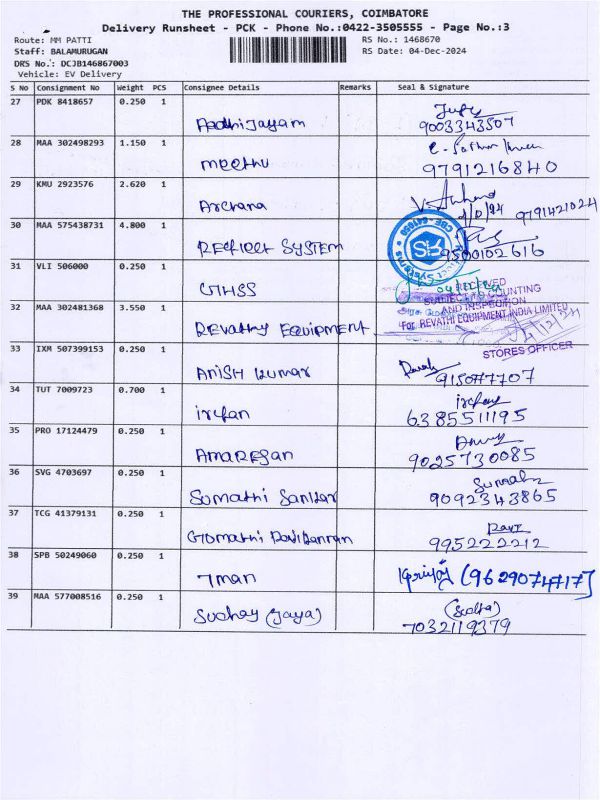 THE PROFESSIONAL COURIERS, COIMBATORE
Delivery Runsheet - PCK - Phone No.:0422-3505555 - Page No.:3
Route: MM PATTI RS No.: 1468670
Staff: BALAMURUGAN RS Date: 04-Dec-2024
DRS No.: DCJB146867003
Vehicle: EV Delivery
S No Consignment No Weight PCS Consignee Details Remarks Seal & Signature
27 PDK 8418657 0.250 1
Aadhi Jayam 9003343507
28 MAA 302498293 1.150 1
meethu 9791216840
29 KMU 2923576 2.620 1
Archana 9791421024
30 MAA 575438731 4.800 1
REFlect SYSTEM 9500102616
31 VLI 506000 0.250 1
GHSS
RECEIVED
SUBJECT TO COUNTING
AND INSPECTION
32 MAA 302481368 3.550 1
For REVATHI EQUIPMENT INDIA LIMITED
Revathy EQUIPMENT
STORES OFFICER
33 IXM 507399153 0.250 1
Anish Kumar
34 TUT 7009723 0.700 1
irfan 6385511195
35 PRO 17124479 0.250 1
AmaREsan 9025730085
36 SVG 4703697 0.250 1
Sumathi Sankar 9092343865
37 TCG 41379131 0.250 1
Gomathi 995222212
38 SPB 50249060 0.250 1
7man (9629074717)
39 MAA 577008516 0.250 1
(Jaya) 7032119379